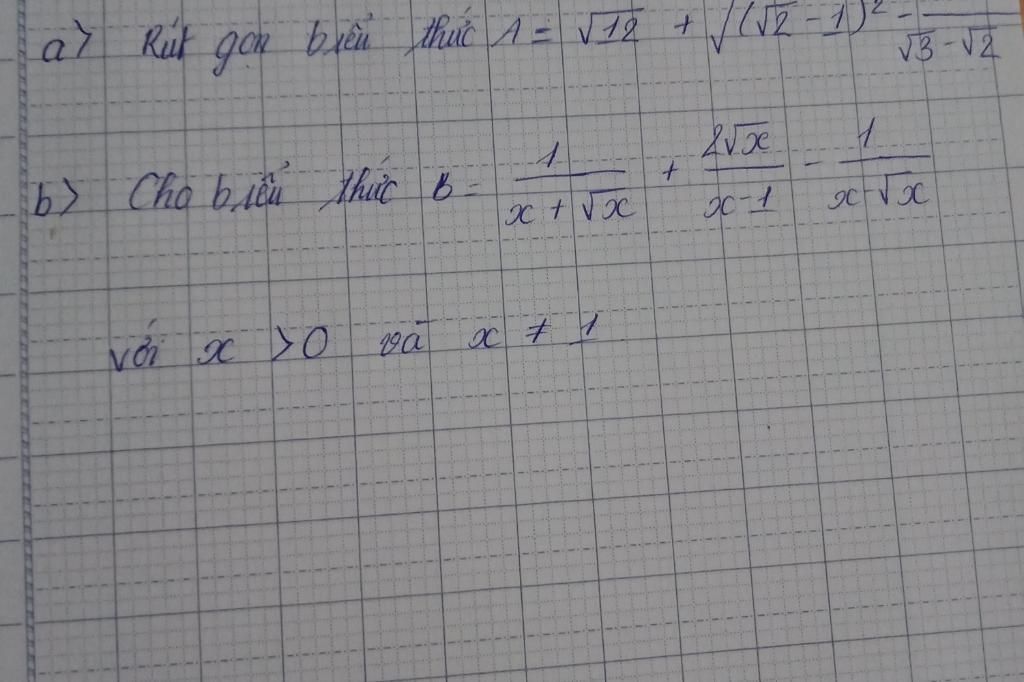 a> Rút gọn biểu thức A = √12 + √(√2 - 1)² - /(√3 - √2)
b> Cho biểu thức B = 1/(x + √x) + 2√x/(x - 1) - 1/(x √x)
với x > 0 và x ≠ 1